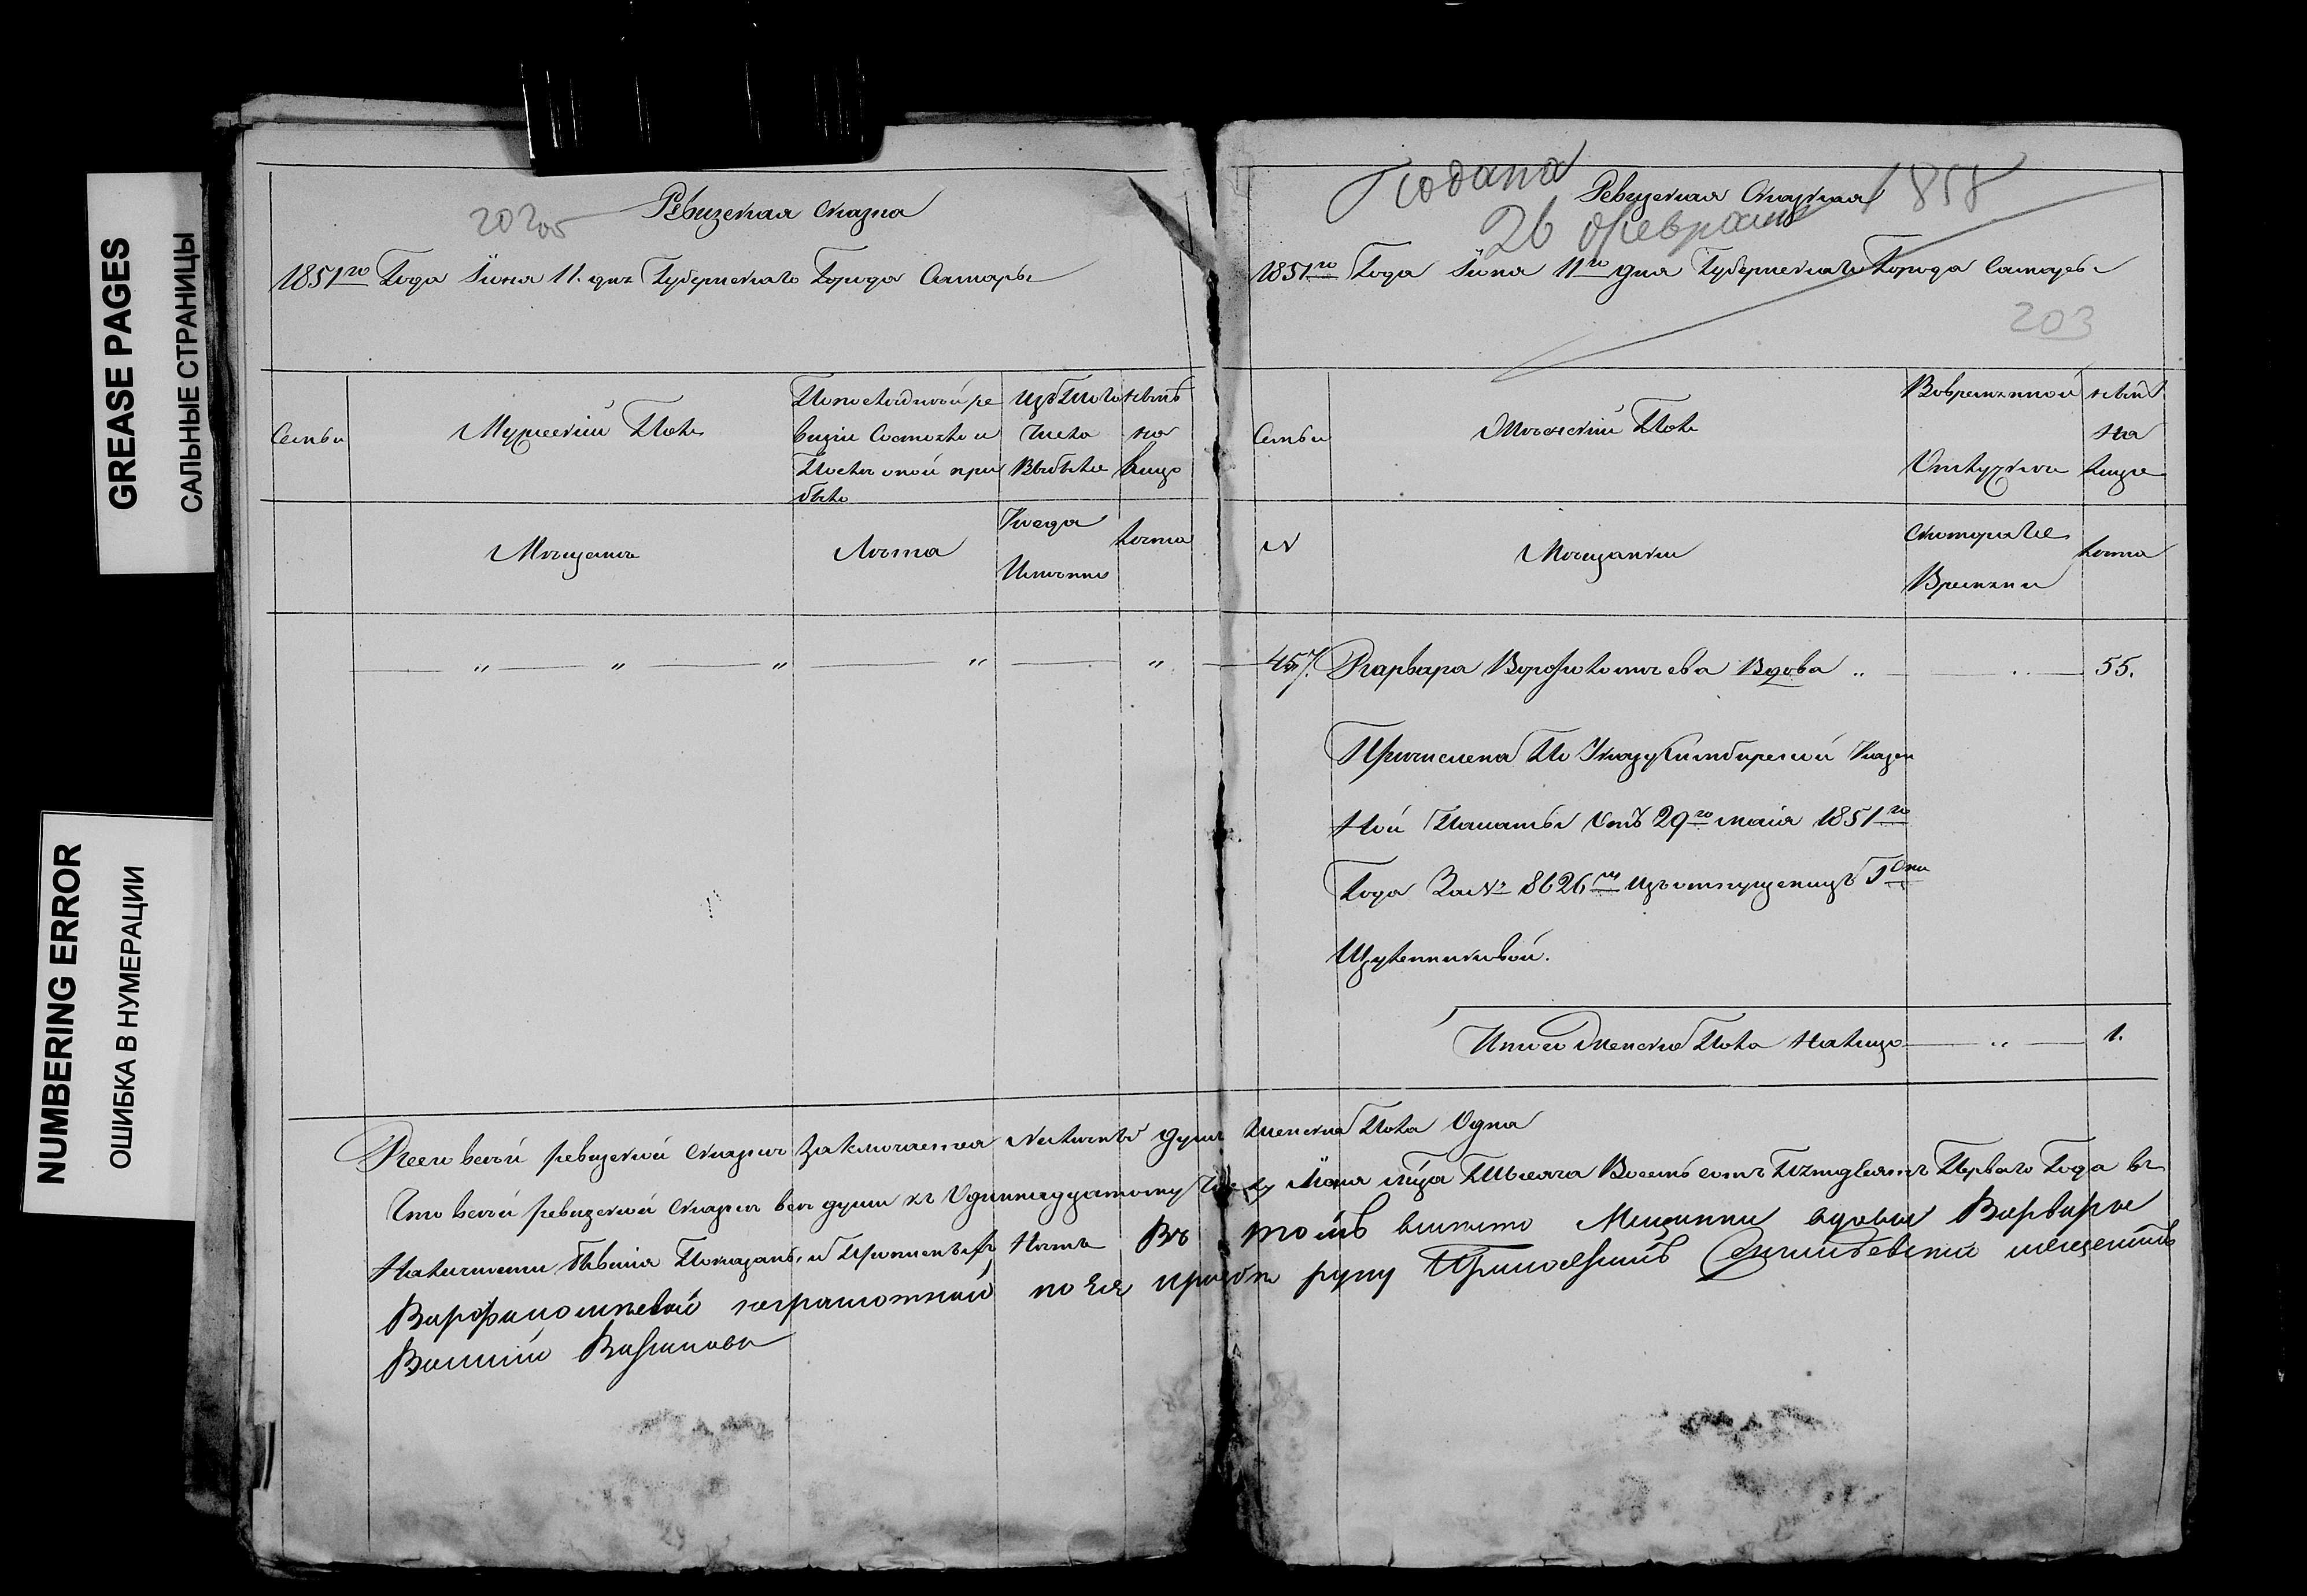 GREASE PAGES
САЛЬНЫЕ СТРАНИЦЫ
NUMBERING ERROR
ОШИБКА В НУМЕРАЦИИ
Ревизская Сказка
1851го Года Июня 11. дня Губернскаго Города Самары
Семьи
Мужеский Полъ
По последней ре
визіи Состояло и
После оной при
было
Изъ того
числа
Выбыло
на
лицо
Мещане
Лета
Когда
Именно
Лета
Подана
26 февраля 1858
Ревизская Сказка
1851го Года Июня 11го дня Губернскаго Города Самары
203
Семьи
Женский Полъ
Вовременной
Отлучке
на
лице
N
Мещанки
Скотораго
Времени
Лета
457. Варвара Ворфоломеева Вдова 55.
Причислена По Указу Симбирской Казен
Ной Палаты Отъ 29го маія 1851го
Года За № 8626м изъ отпущеницъ Гжи
Щулепниковой.
Итого Женска Пола Налицо 1.
Всего в сей ревизской сказке заключается Налицо душъ Женска Пола Одна
Что в сей ревизской сказке все души къ Одиннадцатому Числу Июня м-ца Тысяча Восемь сотъ Пятдесятъ Перваго Года въ
Наличности бывшія Показаны, и Прописныхъ Нетъ Въ томъ вместо Мещанки вдовы Варвары
Варфоломеевой неграмотной по ея прозбе руку Приложилъ мещанинъ
Василий